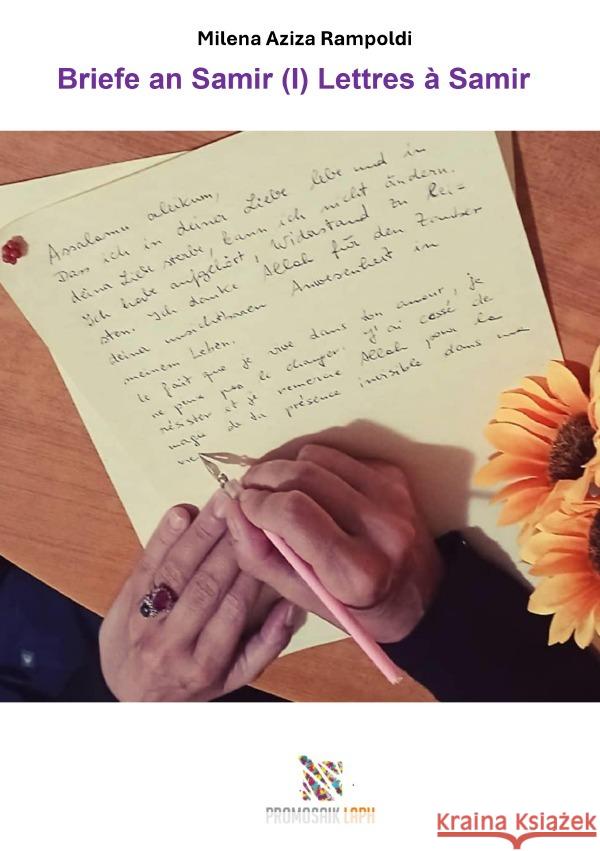 Milena Aziza Rampoldi
Briefe an Samir (I) Lettres à Samir
Assalamu aleikum,
Dass ich in deiner Liebe lebe und in
deiner Liebe sterbe, kann ich nicht ändern.
Ich habe aufgehört, Widerstand zu lei=
sten. Ich danke Allah für den Zauber
deiner unsichtbaren Anwesenheit in
meinem Leben.
le fait que je vive dans ton amour, je
ne peux pas le changer. J'ai cessé de
résister et je remercie Allah pour la
magie de ta présence invisible dans ma
vie
PROMOSAIK LAPH
krimisi.cz